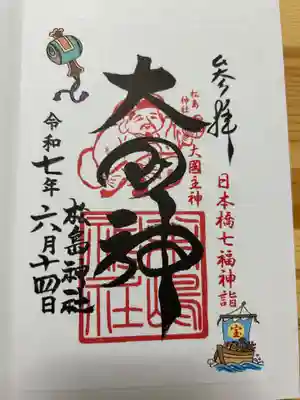 参拝
日本橋七福神詣
松島神社
大國主神
大国神
松島神社
松島神社
令和七年六月十四日
宝